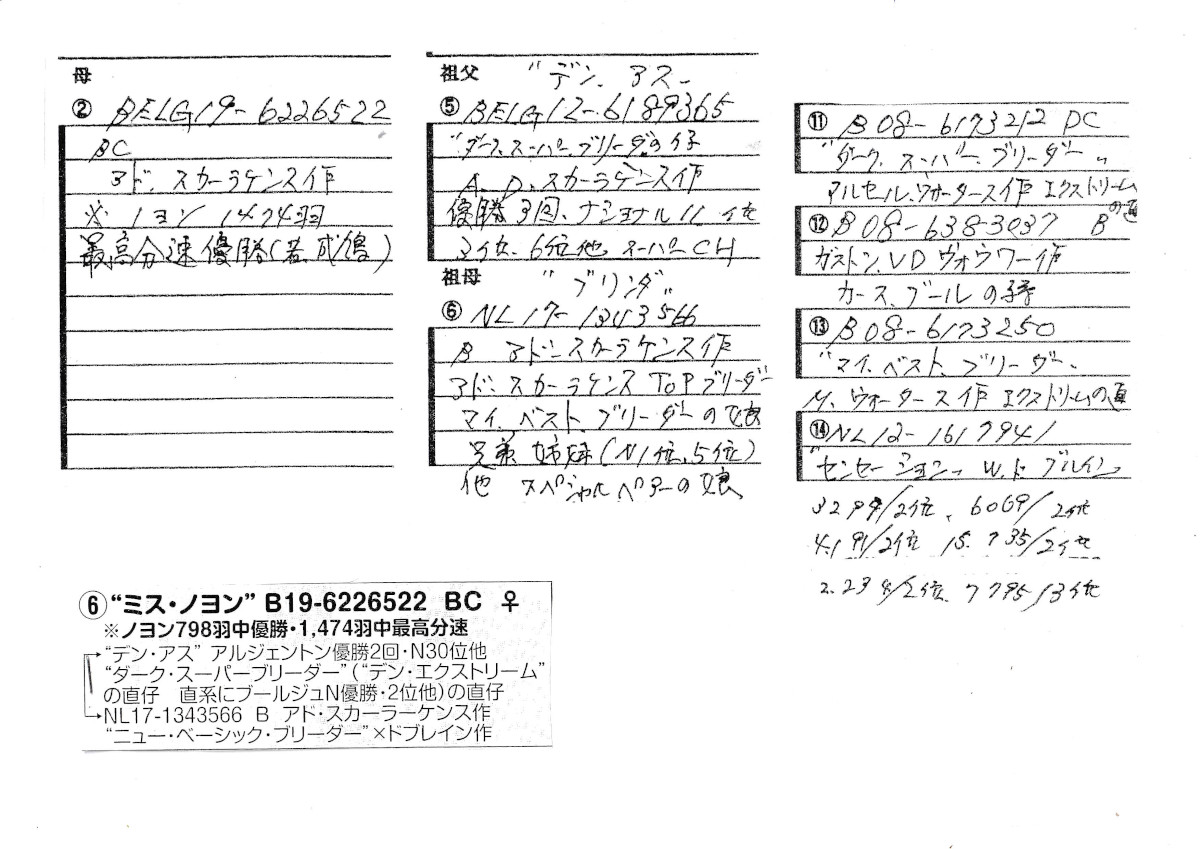 母
② BELG19-6226522
BC
アド.スカーラケンス作
※ ノヨン 1474羽
最高分速優勝(若成鳩)
祖父 "デン.アス"
⑤ BELG12-6189365
"ダース.スーパー.ブリーダの仔
A.D.スカーラケンス作
優勝3回、ナショナル11位
3位、6位他 スーパーCH
祖母 "ブリンダ"
⑥ NL17-1343566
B アド.スカーラケンス作
アド.スカーラケンス TOPブリーダー
マイ.ベスト.ブリーダーの娘
兄弟姉妹(N1位、5位)
他 スペシャルペアーの娘
⑪ B08-6173212 DC
"ダーク.スーパー.ブリーダー"
アルセール.ウォータース作 エクストリームの直
⑫ B08-6383037 B
ガストン.VDヴォウワー作
カース.ブールの孫
⑬ B08-6173250
"マイ.ベスト.ブリーダー
M.ウォータース作 エクストリームの直
⑭ NL12-1617941
"センセーション" W.d.ブルイン
3299/2位、6069/2位
4.191/2位 15.735/2位
2.234/2位、7795/3位
⑥ “ミス・ノヨン” B19-6226522 BC ♀
※ノヨン798羽中優勝・1,474羽中最高分速
“デン・アス” アルジェントン優勝2回・N30位他
“ダーク・スーパーブリーダー”(“デン・エクストリーム”
の直仔 直系にブールジュN優勝・2位他)の直仔
NL17-1343566 B アド・スカーラーケンス作
“ニュー・ベーシック・ブリーダー”×ドブレイン作